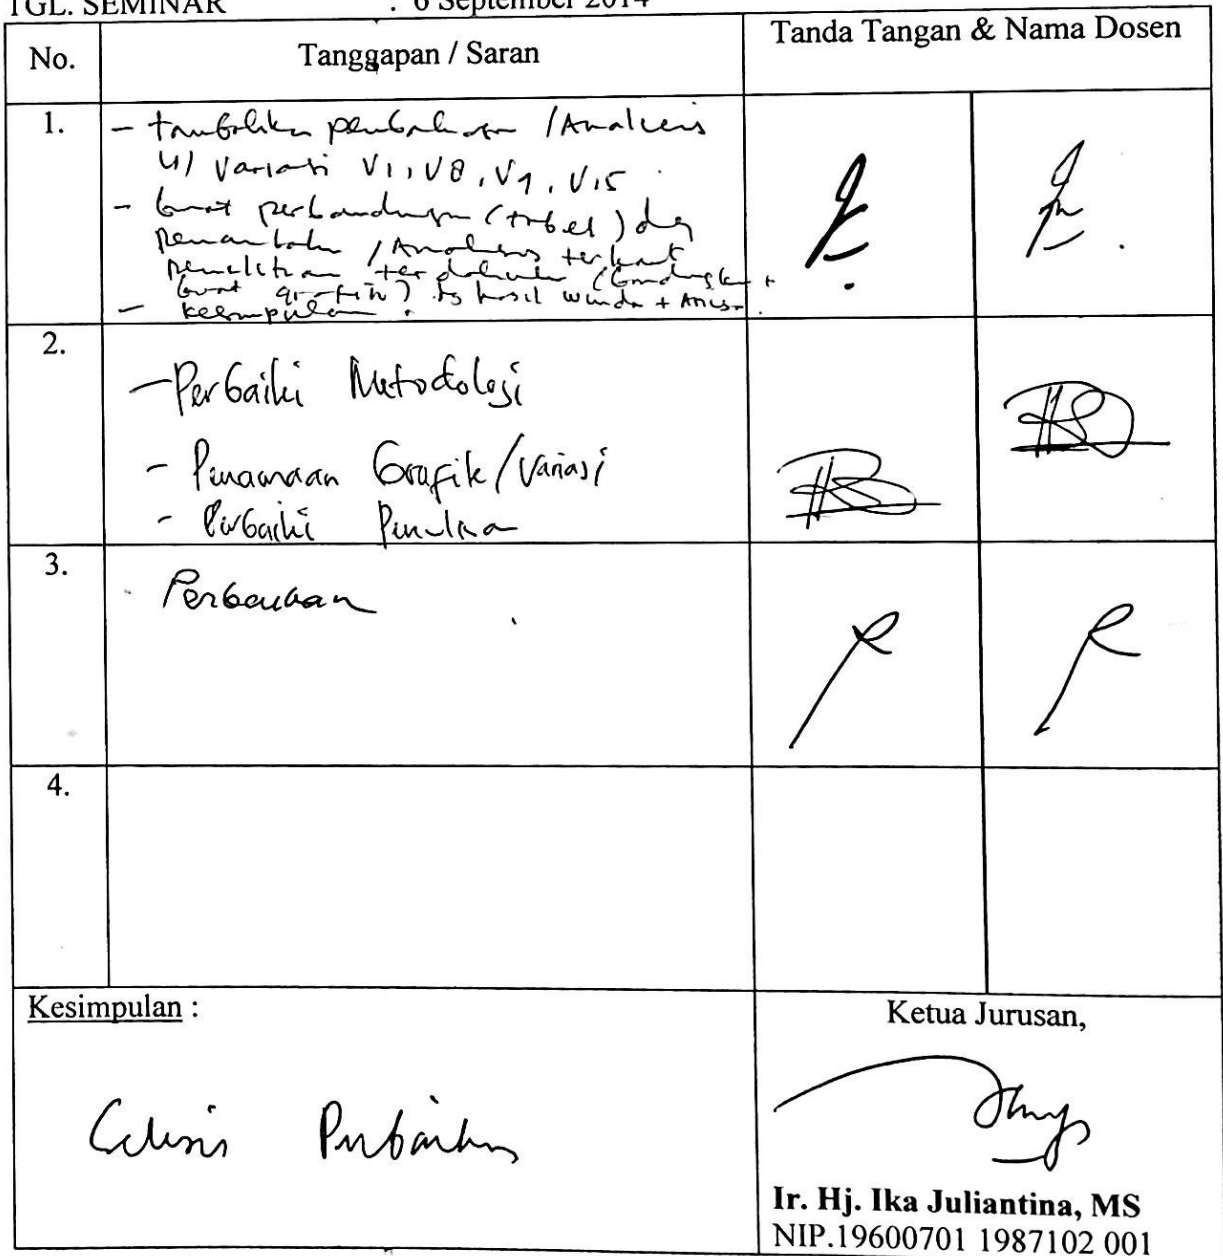 TGL. SEMINAR : 6 September 2014
No. Tanggapan / Saran Tanda Tangan & Nama Dosen
1.
- tambahkan pembahasan / Analisis
u/ variasi V1, V8, V9, V15
- buat perbandingan (tabel) dg
/ Analisis terkait
penelitian terdahulu
buat grafik)
- kesimpulan.
2.
- Perbaiki Metodologi
- Penamaan Grafik/Variasi
- Perbaiki
3.
Perbaikan
4.
Kesimpulan :
Ketua Jurusan,
Ir. Hj. Ika Juliantina, MS
NIP.19600701 1987102 001